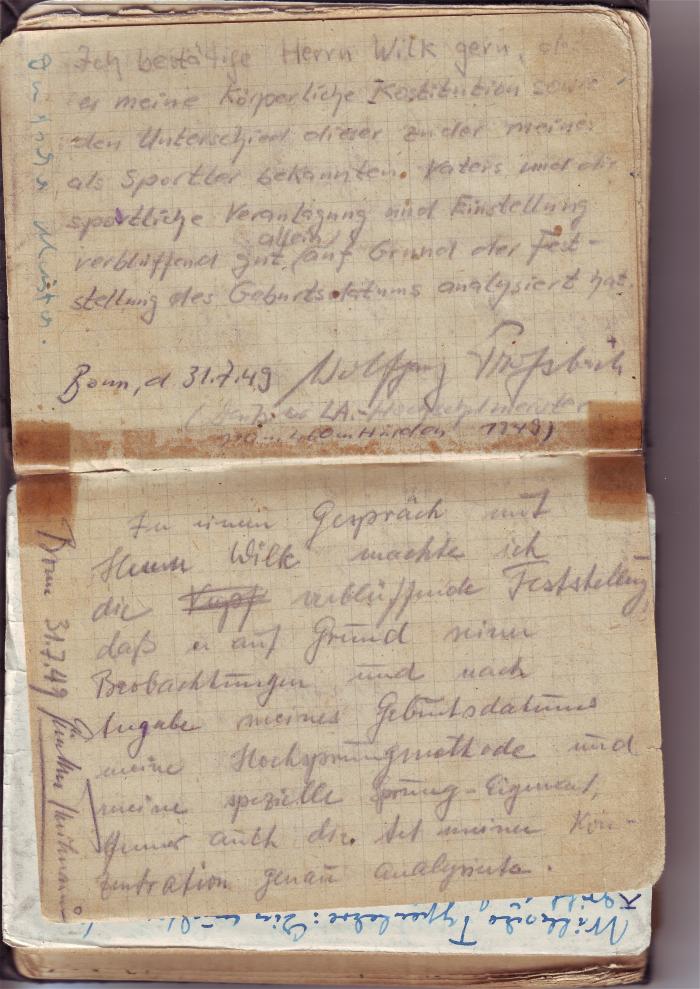 Ich bestätige Herrn Wilk gern,
er meine Körperliche Kostitution sowie
den Unterschied dieser zu der meines
als Sportler bekannten Vaters und die
sportliche Veranlagung und Einstellung
allein
verblüffend gut auf Grund der Fest-
stellung des Geburtsdatums analysiert hat.
Bonn, d. 31.7.49 Wolfgang
400m Hürden 1949)
In einem Gespräch mit
Herrn Wilk machte ich
die verblüffende Feststellung,
daß er auf Grund seiner
Beobachtungen und nach
Angabe meines Geburtsdatums
meine Hochsprungmethode und
meine spezielle Sprung-Eigenart,
ferner auch die Art meiner Kon-
zentration genau analysierte.
Bonn 31.7.49 Günther